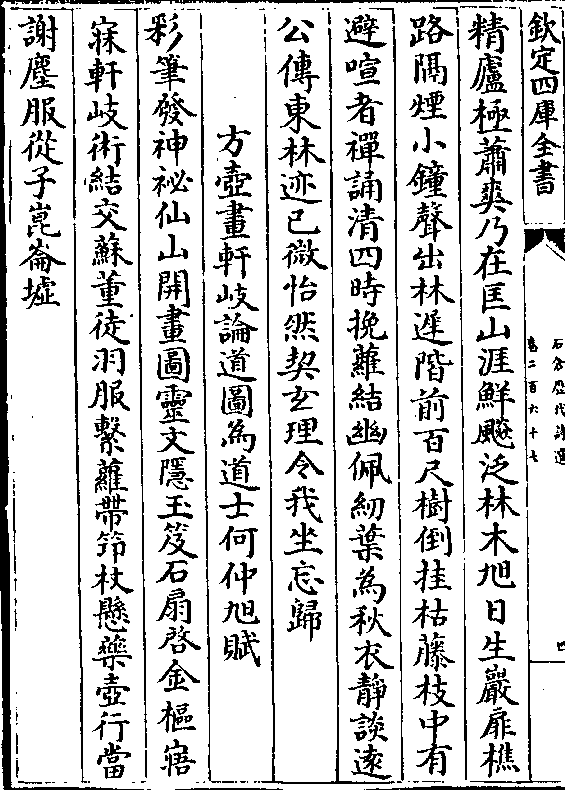 欽定四庫全書
石倉歷代詩選
卷二百六十七
四
精廬極蕭爽乃在匡山涯鮮飈泛林木旭日生巖扉樵
路隔煙小鐘聲出林遲階前百尺樹倒挂枯藤枝中有
避喧者禪誦清四時挽蘿結幽佩紉葉為秋衣靜談遠
公傳東林迹已微怡然契玄理令我坐忘歸
方壺畫軒岐論道圖為道士何仲旭賦
彩筆發神祕仙山開畫圖靈文隱玉笈石扇啓金樞寤
寐軒岐術結交蘇董徒羽服繫蘿帶笻杖懸藥壺行當
謝塵服從子崑崙墟